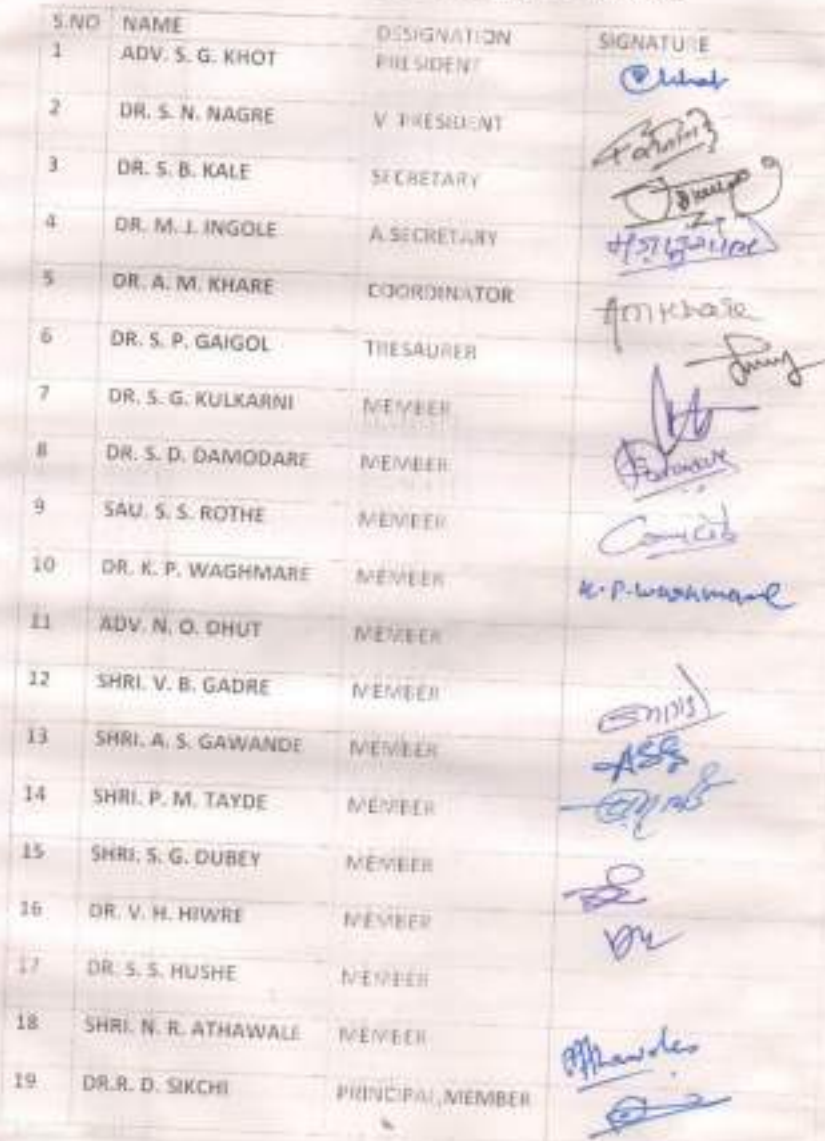 S.NO NAME DESIGNATION SIGNATURE
1 ADV. S. G. KHOT PRESIDENT
2 DR. S. N. NAGRE V. PRESIDENT
3 DR. S. B. KALE SECRETARY
4 DR. M. J. INGOLE A.SECRETARY
5 DR. A. M. KHARE COORDINATOR Amkhare
6 DR. S. P. GAIGOL TRESAURER
7 DR. S. G. KULKARNI MEMBER
8 DR. S. D. DAMODARE MEMBER
9 SAU. S. S. ROTHE MEMBER
10 DR. K. P. WAGHMARE MEMBER K.P.Waghmare
11 ADV. N. O. DHUT MEMBER
12 SHRI. V. B. GADRE MEMBER
13 SHRI. A. S. GAWANDE MEMBER ASG
14 SHRI. P. M. TAYDE MEMBER
15 SHRI. S. G. DUBEY MEMBER
16 DR. V. H. HIWRE MEMBER
17 DR. S. S. HUSHE MEMBER
18 SHRI. N. R. ATHAWALE MEMBER
19 DR.R. D. SIKCHI PRINCIPAL,MEMBER